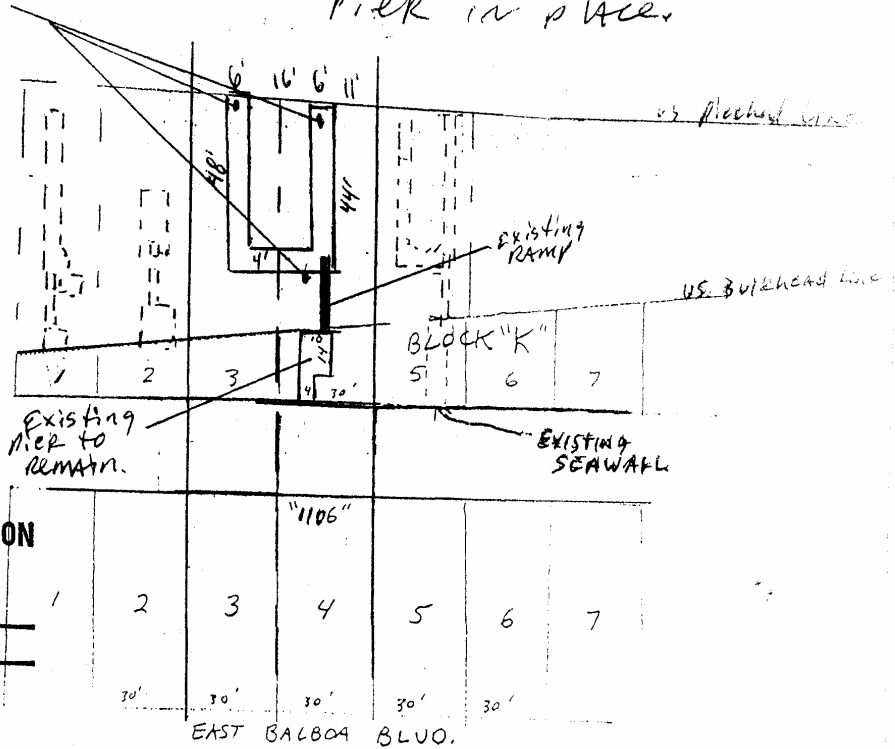 PIER IN PLACE.
6' 16' 6' 11'
US Pierhead Line
48'
44'
4'
Existing
RAMP
US. Bulkhead Line
BLOCK "K"
10'
14'
1 2 3 4 30' 5 6 7
Existing
PIER to
REMAIN.
EXISTING
SEAWALL
"1106"
ON
1 2 3 4 5 6 7
30' 30' 30' 30' 30'
EAST BALBOA BLVD.